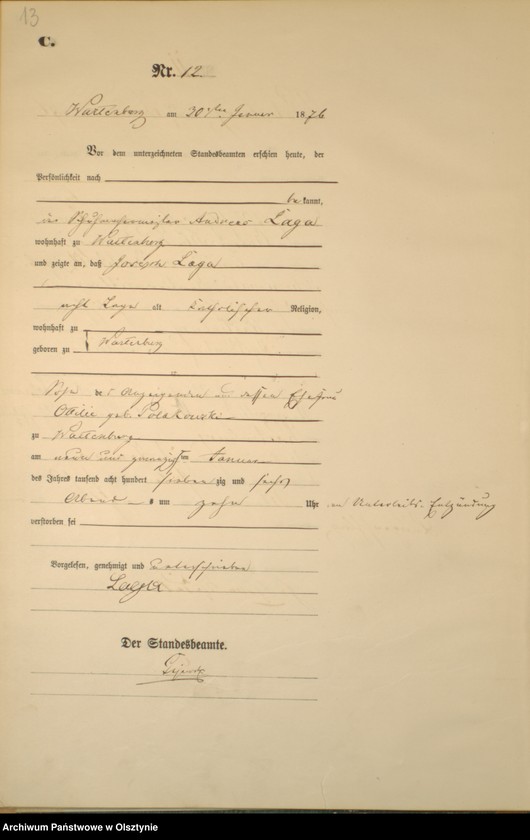 13
C.
Nr. 12.
Wartenberg am 30ten Januar 1876
Vor dem unterzeichneten Standesbeamten erschien heute, der
Persönlichkeit nach
bekannt,
der Schuhmachermeister Andreas Laga
wohnhaft zu Wartenberg
und zeigte an, daß Joseph Laga
acht Tage alt katholischer Religion,
wohnhaft zu
geboren zu Wartenberg
Sohn des Anzeigenden und dessen Ehefrau
Ottilie geb. Polekowski
zu Wartenberg
am neun und zwanzigsten Januar
des Jahres tausend acht hundert siebenzig und sechs
Abends um zehn Uhr an Unterleibs-Entzündung
verstorben sei
Vorgelesen, genehmigt und unterschrieben
Laga
Der Standesbeamte.
Archiwum Państwowe w Olsztynie